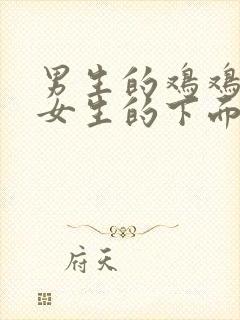 男生的鸡鸡
女生的下面
府天